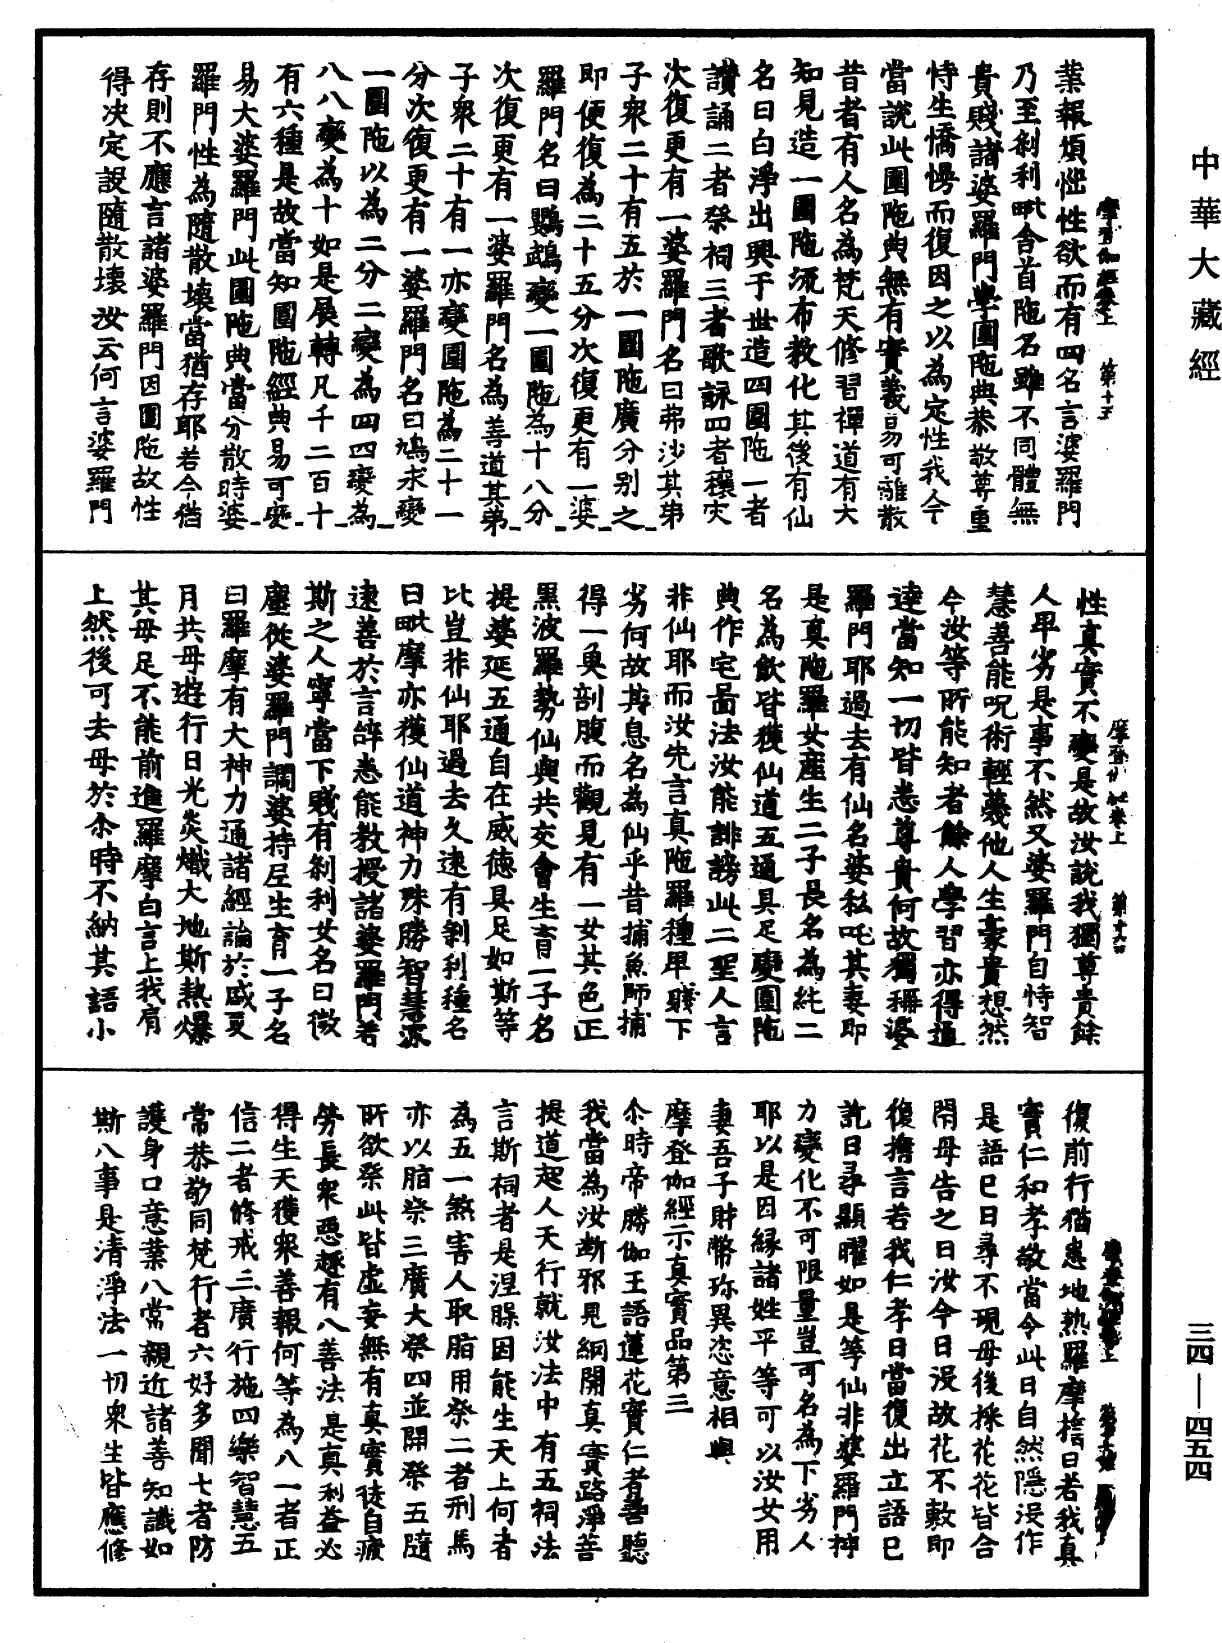 中華大藏經
業報煩惱性欲而有四名言婆羅門
乃至剎利毗舍首陁名雖不同體無
貴賤諸婆羅門學圍陁典恭敬尊重
恃生憍慢而復因之以為定性我今
當說此圍陁典無有實義易可離散
昔者有人名為梵天修習禪道有大
知見造一圍陁流布教化其後有仙
名曰白淨出興于世造四圍陁一者
讚誦二者祭祠三者歌詠四者穰灾
次復更有一婆羅門名曰弗沙其弟
子衆二十有五於一圍陁廣分別之
即便復為二十五分次復更有一婆
羅門名曰鸚鵡變一圍陁為十八分
次復更有一婆羅門名為善道其弟
子衆二十有一亦變圍陁為二十一
分次復更有一婆羅門名曰鳩求變
一圍陁以為二分二變為四四變為
八八變為十如是展轉凡千二百十
有六種是故當知圍陁經典易可變
易大婆羅門此圍陁典當分散時婆
羅門性為隨散壞當猶存耶若今猶
存則不應言諸婆羅門因圍陁故性
得決定設隨散壞汝云何言婆羅門
性真實不變是故汝說我獨尊貴餘
人卑劣是事不然又婆羅門自恃智
慧善能呪術輕蔑他人生豪貴想然
今汝等所能知者餘人學習亦得通
達當知一切皆悉尊貴何故獨稱婆
羅門耶過去有仙名婆私吒其妻即
是真陁羅女產生二子長名為純二
名為飲皆獲仙道五通具足變圍陁
典作宅圖法汝能誹謗此二聖人言
非仙耶而汝先言真陁羅種卑賤下
劣何故其息名為仙乎昔捕魚師捕
得一魚剖腹而觀見有一女其色正
黑波羅勢仙與共交會生育一子名
提婆延五通自在威德具足如斯等
比豈非仙耶過去久遠有剎利種名
曰毗摩亦獲仙道神力殊勝智慧深
遠善於言辞悉能教授諸婆羅門若
斯之人寧當下賤有剎利女名曰微
塵從婆羅門調婆持尼生育一子名
曰羅摩有大神力通諸經論於盛夏
月共母遊行日光炎熾大地斯熱爆
其母足不能前進羅摩白言上我肩
上然後可去母於尒時不納其語小
復前行猶患地熱羅摩㨪日若我真
實仁和孝敬當令此日自然隱没作
是語已日尋不現母後採花花皆合
閇母告之曰汝今日没故花不敷即
復擔言若我仁孝日當復出立語已
訖日尋顯曜如是等仙非婆羅門神
力變化不可限量豈可名為下劣人
耶以是因緣諸姓平等可以汝女用
妻吾子財幣珎異恣意相與
摩登伽經示真實品第三
尒時帝勝伽王語蓮花實仁者善聽
我當為汝斷邪見網開真實路淨菩
提道起人天行就汝法中有五祠法
言斯祠者是涅槃因能生天上何者
為五一煞害人取脂用祭二者刑馬
亦以脂祭三廣大祭四並開祭五隨
所欲祭此皆虛妄無有真實徒自疲
勞長衆惡趣有八善法是真利益必
得生天獲衆善報何等為八一者正
信二者修戒三廣行施四樂智慧五
常恭敬同梵行者六好多聞七者防
護身口意業八常親近諸善知識如
斯八事是清淨法一切衆生皆應修
三四—四五四